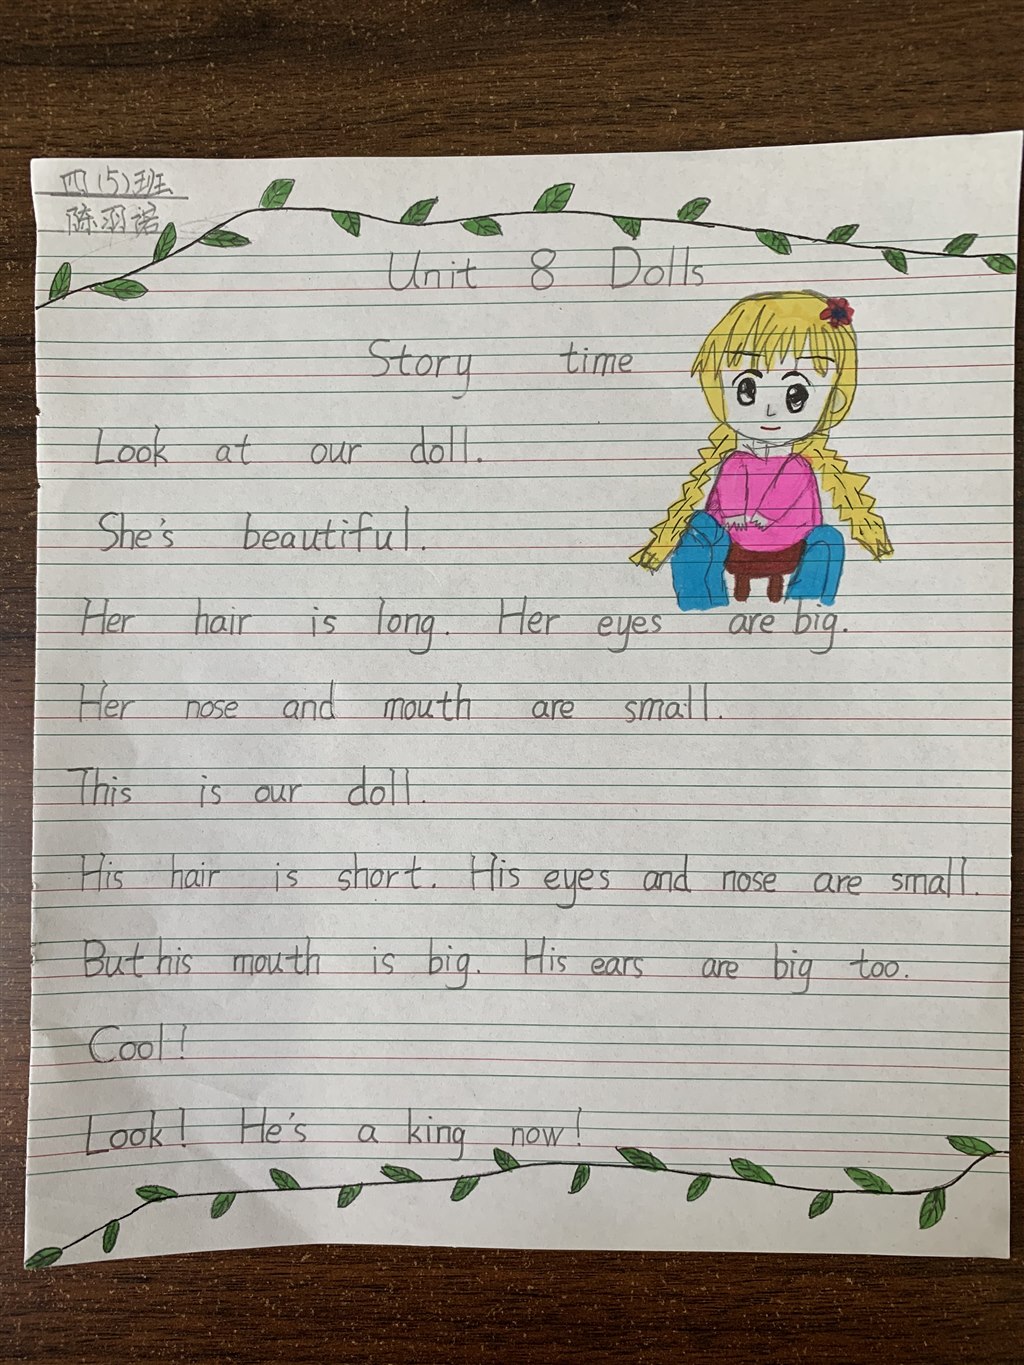 四(5)班
陈羽诺
Unit 8 Dolls
Story time
Look at our doll.
She's beautiful.
Her hair is long. Her eyes are big.
Her nose and mouth are small.
This is our doll.
His hair is short. His eyes and nose are small.
But his mouth is big. His ears are big too.
Cool!
Look! He's a king now!